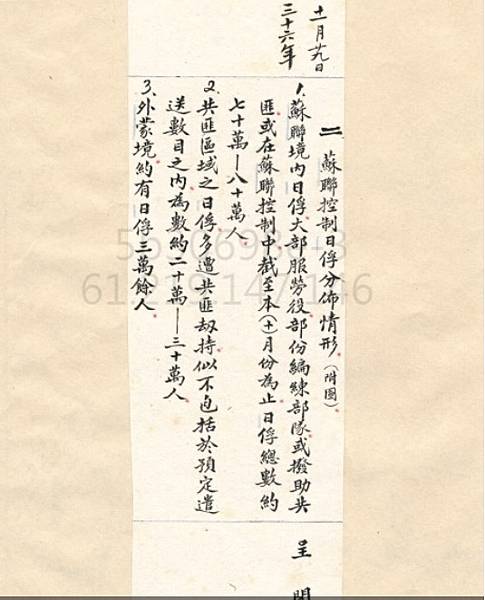 三十六年
十一月廿九日
二 蘇聯控制日俘分佈情形(附圖)
1.蘇聯境內日俘大部服勞役部份編練部隊或撥助共
匪或在蘇聯控制中截至本(十)月份為止日俘總數約
七十萬—八十萬人
2.共匪區域之日俘多遭共匪劫持似不包括於預定遣
送數目之內為數約二十萬—三十萬人
3.外蒙境約有日俘三萬餘人
呈